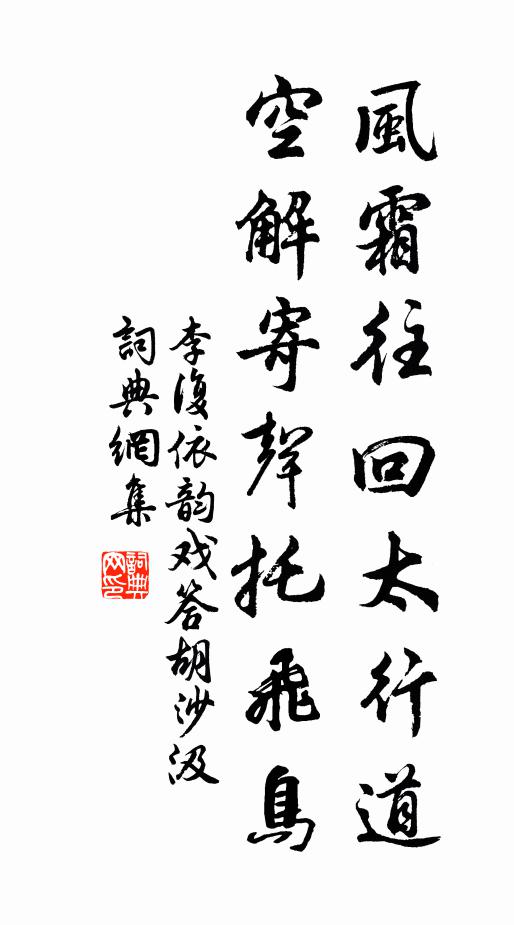 風霜往回太行道
空解寄聲托飛鳥
李復依韵戏答胡沙汲
詞典網集
詞典
网印